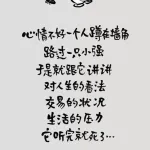 心情不好一个人蹲在墙角
路过一只小强
于是就跟它讲讲
对人生的看法
交易的状况
生活的压力
它听完就死了...